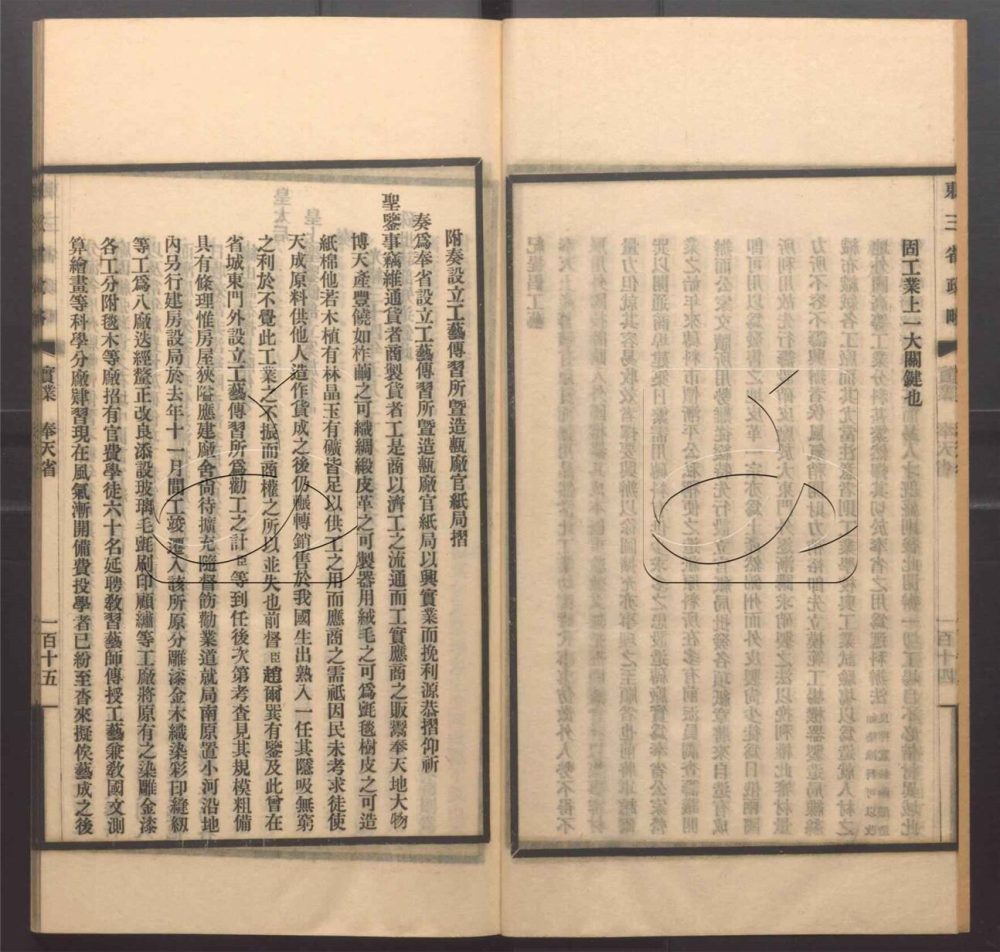 東三省政略
固工業上一大關鍵也
一百十四
附奏設立工藝傳習所曁造甎廠官紙局摺
奏爲奉省設立工藝傳習所曁造甎廠官紙局以興實業而挽利源恭摺仰祈
聖鑒事竊維通貨者商製貨者工是商以濟工之流通而工實應商之販鬻奉天地大物
博天產豐饒如柞繭之可織綢緞皮革之可製器用絨毛之可爲氈毯樹皮之可造
紙棉他若木植有林晶玉有礦皆足以供工之用而應商之需祇因民未考求徒使
天成原料供他人造作貨成之後仍輾轉銷售於我國生出熟入一任其隱吸無窮
之利於不覺此工業之不振而商權之所以並失也前督臣趙爾巽有鑒及此曾在
省城東門外設立工藝傳習所爲勸工之計臣等到任後次第考查見其規模粗備
具有條理惟房屋狹隘應建廠舍尙待擴充隨督飭勸業道就局南原置小河沿地
內另行建房設局於去年十一月間工竣遷入該所原分雕漆金木織染彩印縫紉
等工爲八廠迭經釐正改良添設玻璃毛氈刷印顧繡等工廠將原有之染雕金漆
各工分附毯木等廠招有官費學徒六十名延聘敎習藝師傳授工藝兼敎國文測
算繪畫等科學分廠肄習現在風氣漸開備費投學者已紛至沓來擬俟藝成之後
實業 奉天省
一百十五